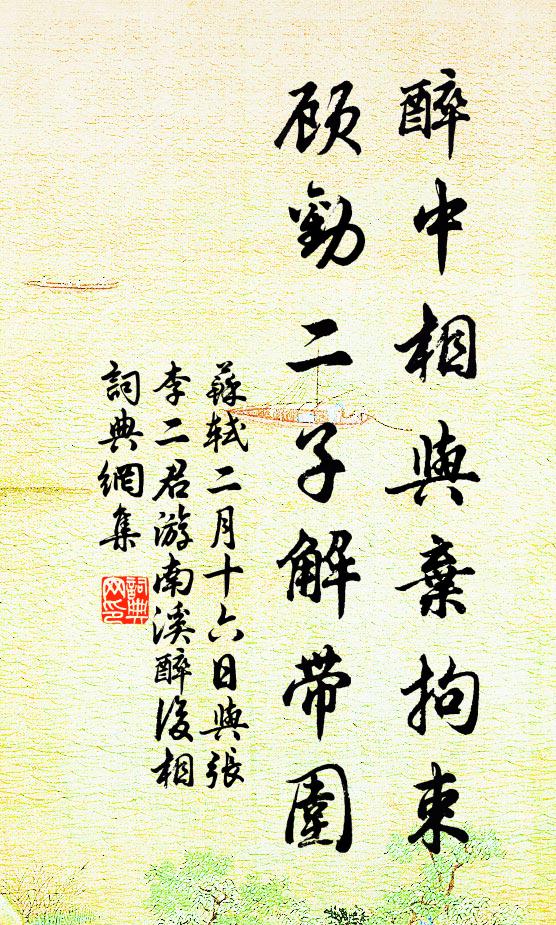 醉中相與棄拘束
顧勸二子解带圍
蘇軾二月十六日與張
李二君游南溪醉後相
詞典網集
詞典
网印